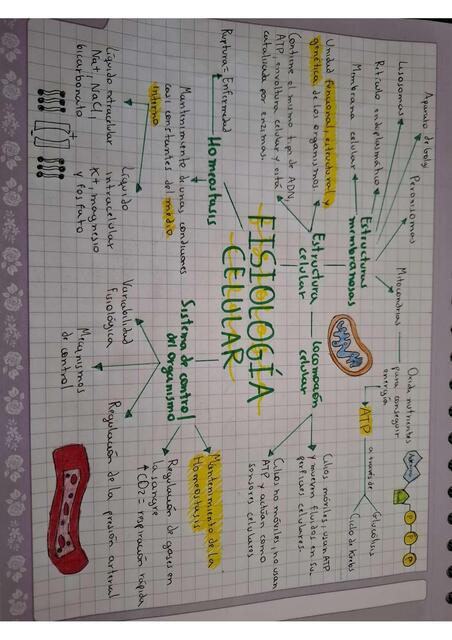 FISIOLOGÍA
CELULAR
Homeostasis
Ruptura = Enfermedad
Mantenimiento de unas condiciones
casi constantes del medio
interno
Líquido extracelular
Na+ NaCl,
bicarbonato
Líquido
intracelular
K+, magnesio
y fosfato
Estructura
celular
Unidad funcional, estructural y
genética de los organismos.
Contiene el mismo tipo de ADN,
ATP, envoltura celular y está
catalizada por enzimas.
Estructuras
membranosas
Membrana celular
Retículo endoplasmático
Lisosomas
Aparato de Golgi
Peroxisomas
Mitocondrias
Oxida nutrientes
para conseguir
energía
ATP
a través de:
Glucólisis
Ciclo de Krebs
P
P
P
locomoción
celular
Cilios móviles: usan ATP
y mueven fluidos en su-
perficies celulares.
Cilios no móviles, no usan
ATP y actúan como
sensores celulares
Sistema de control
del organismo
Mantenimiento de la
Homeostasis
Regulación de gases en
la sangre
↑CO2 = respiración rápida
Regulación de la presión arterial
Mecanismos
de control
Variabilidad
fisiológica